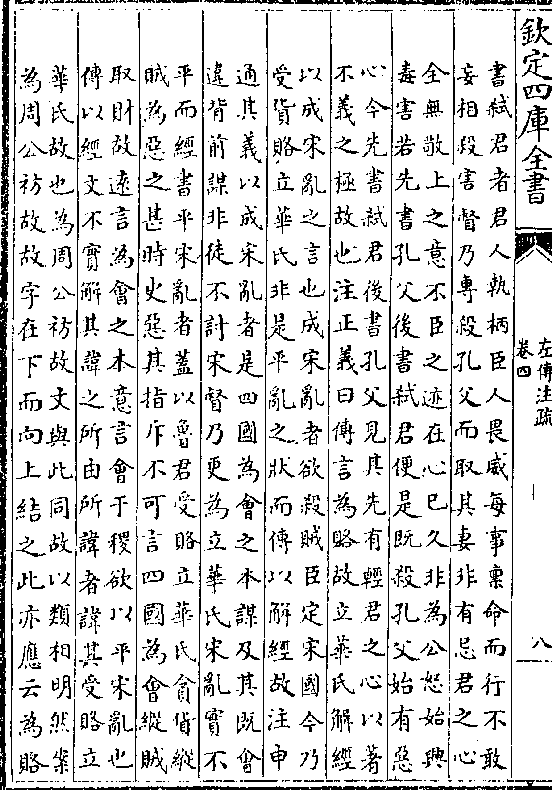 欽定四庫全書
左傳注疏
卷四
八
書弑君者君人執柄臣人畏威每事稟命而行不敢
妄相殺害督乃專殺孔父而取其妻非有忌君之心
全無敬上之意不臣之迹在心已久非為公怒始興
毒害若先書孔父後書弑君便是既殺孔父始有惡
心今先書弑君後書孔父見其先有輕君之心以著
不義之極故也注正義曰傳言為賂故立華氏解經
以成宋亂之言也成宋亂者欲殺賊臣定宋國今乃
受貨賂立華氏非是平亂之狀而傳以解經故注申
通其義以成宋亂者是四國為會之本謀及其既會
違背前謀非徒不討宋督乃更為立華氏宋亂實不
平而經書平宋亂者蓋以魯君受賂立華氏貪貨縱
賊為惡之甚時史惡其指斥不可言四國為會縱賊
取財故遠言為會之本意言會于稷欲以平宋亂也
傳以經文不實解其諱之所由所諱者諱其受賂立
華氏故也為周公祊故文與此同故以類相明然案
為周公祊故故字在下而向上結之此亦應云為賂